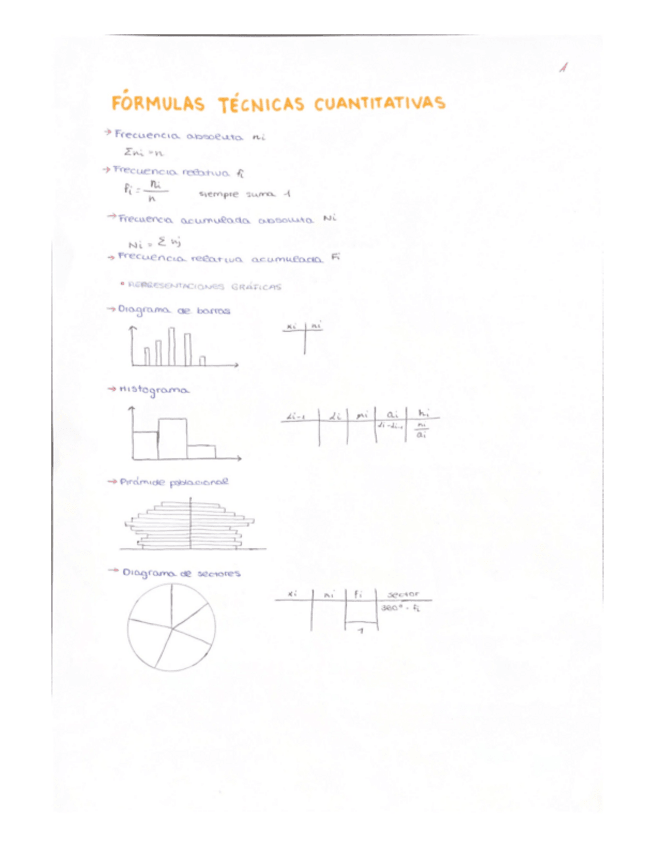 1
FÓRMULAS TÉCNICAS CUANTITATIVAS
→ Frecuencia absoluta ni
Σni = n
→ Frecuencia relativa fi
fi = ni/n siempre suma 1
→ Frecuencia acumulada absoluta Ni
Ni = Σ nj
→ Frecuencia relativa acumulada Fi
• REPRESENTACIONES GRÁFICAS
→ Diagrama de barras
xi | ni
→ Histograma
Li-1 | Li | ni | ai | hi
Li-Li-1 | ni/ai
→ Pirámide poblacional
→ Diagrama de sectores
xi | ni | fi | sector
360° · fi
1